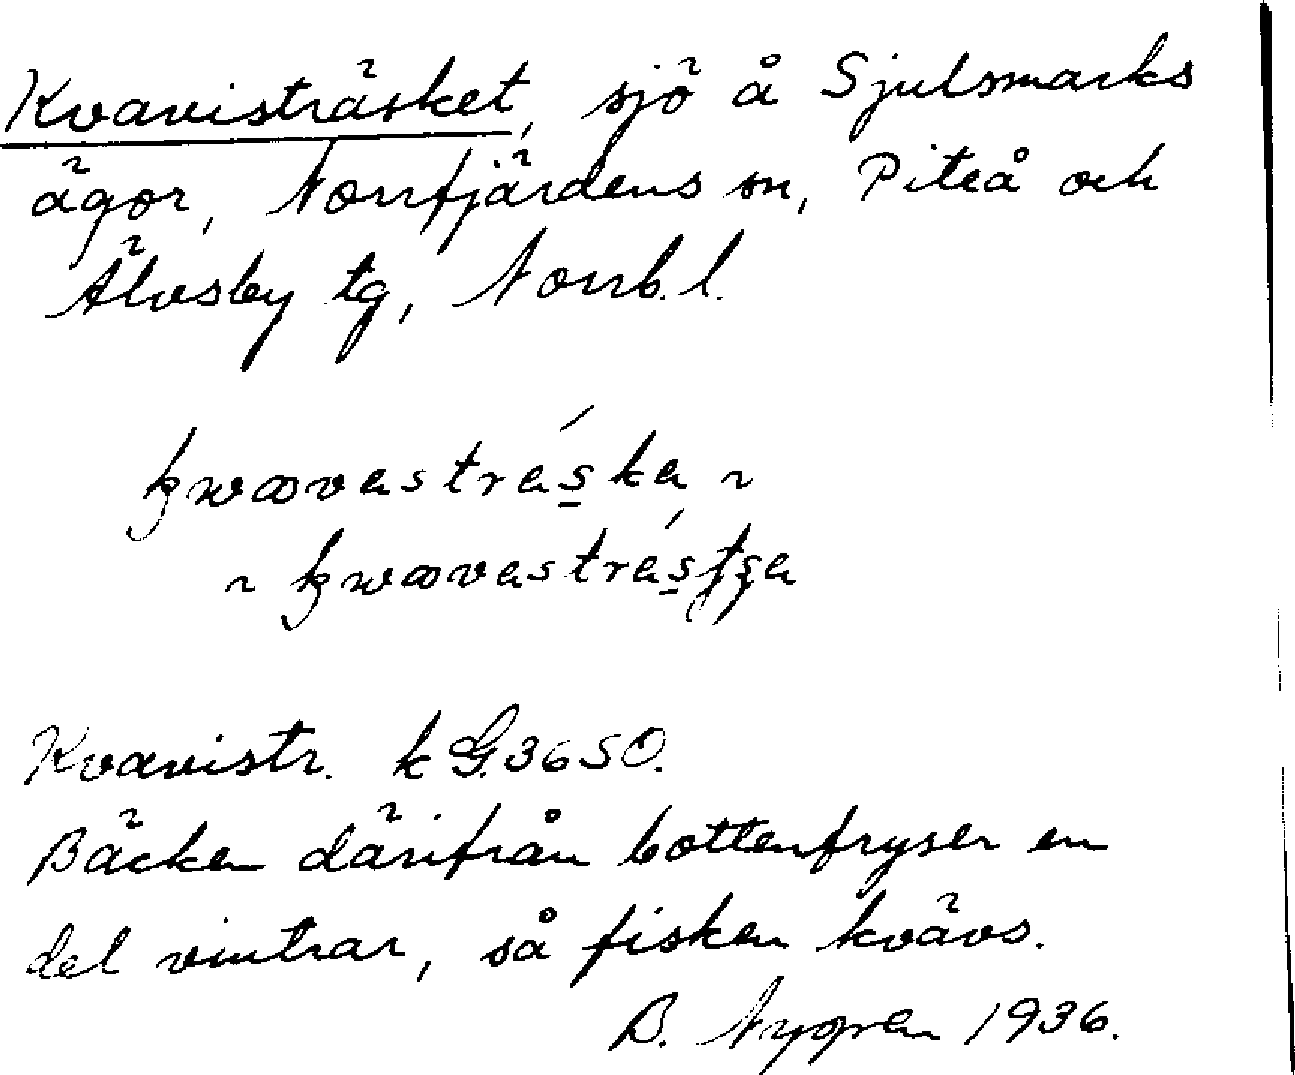 Kvavisträsket, sjö å Sjulsmarks
ägor, Norrfjärdens sn, Piteå och
Älvsby tg, Norrb. l.
kwαvastráska ~
~ kwαvastrástʂa
Kvavistr. k G.3650.
Bäcken därifrån bottenfryser en
del vintrar, så fisken kvävs.
B. Nygren 1936.